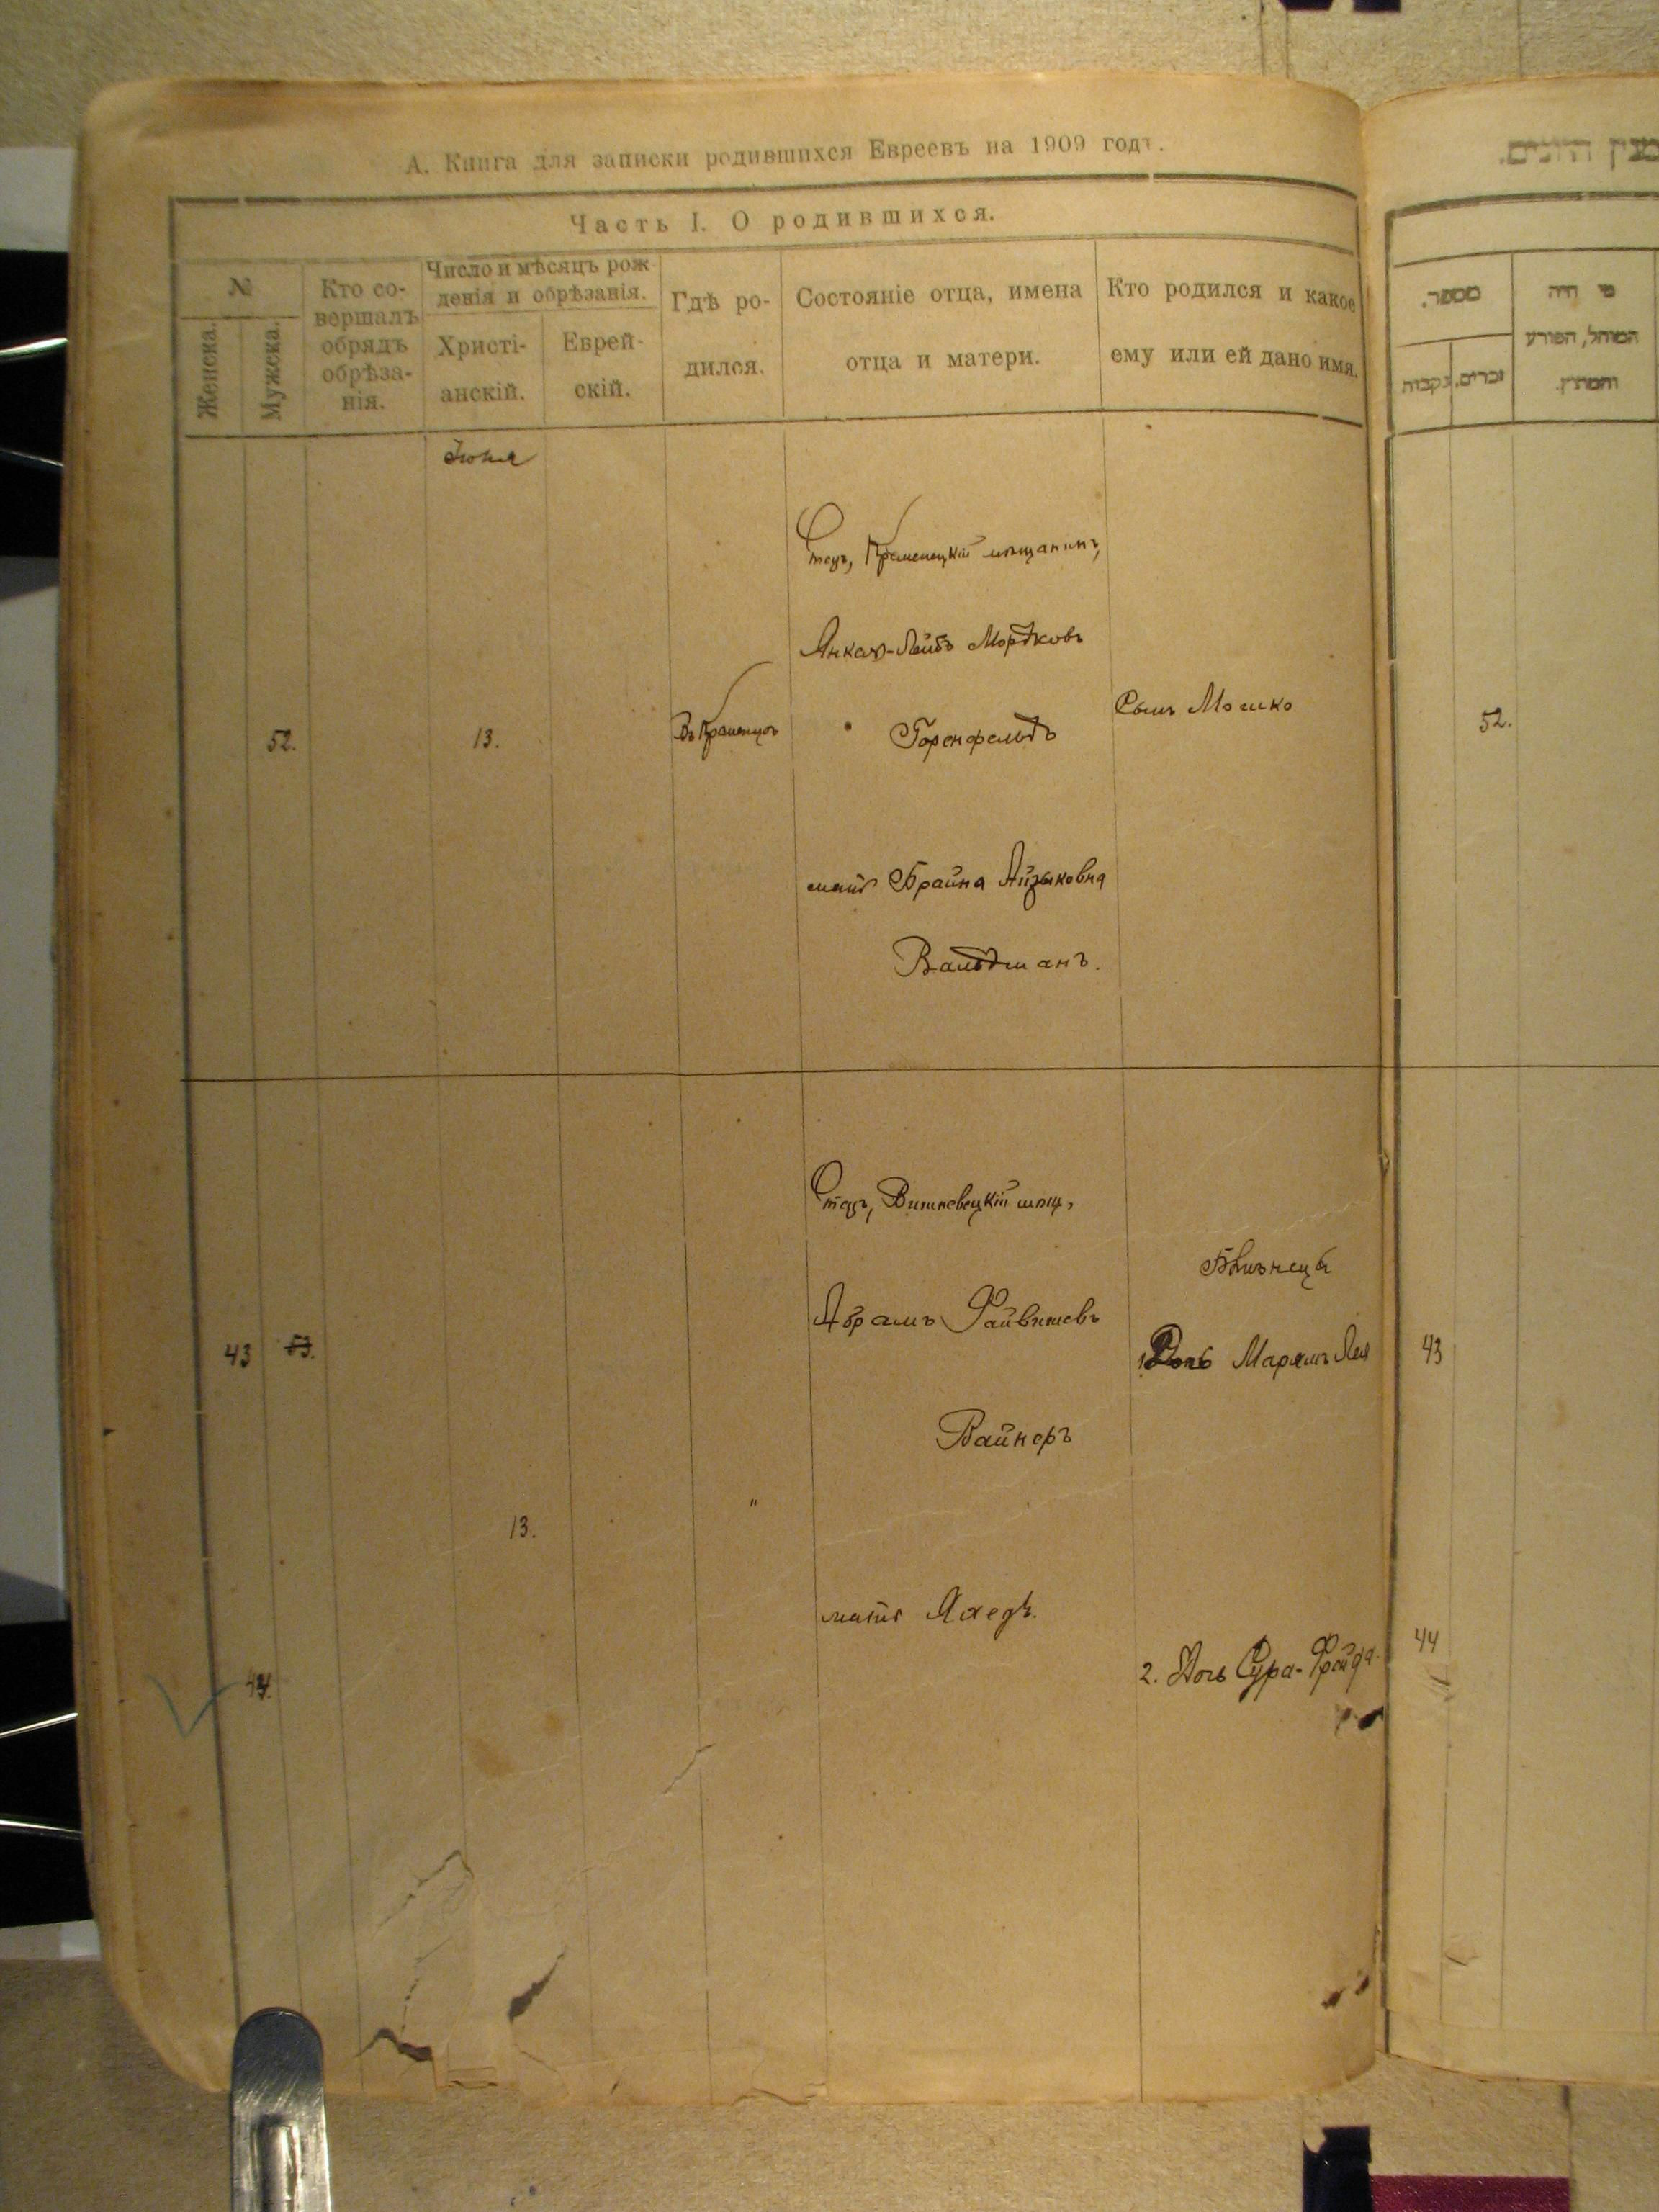 А. Книга для записки родившихся Евреевъ на 1909 годъ.
Часть I. О родившихся.
№
Женска.
Мужска.
Кто со-
вершалъ
обрядъ
обрѣза-
нія.
Число и мѣсяцъ рож
денія и обрѣзанія.
Христі-
анскій.
Еврей-
скій.
Гдѣ ро-
дился.
Состояніе отца, имена
отца и матери.
Кто родился и какое
ему или ей дано имя.
Іюня
52.
13.
Въ Кременцѣ
Отецъ, Кременецкій мѣщанинъ,
Янкель-Лейбъ Мордковъ
Горенфельдъ
мать Брайна Айзыковна
Вальдманъ.
Сынъ Мошко
43
53.
13.
"
Отецъ, Вишневецкій мѣщ.
Абрамъ Файвишевъ
Вайнеръ
мать
Близнецы
1. Дочь Марямъ Лея
44.
2. Дочь Сура-Фрейда.
מספר.
זכרים,
נקבות
מי היה
המוהל, הפורע
והמוצץ.
52.
43
44